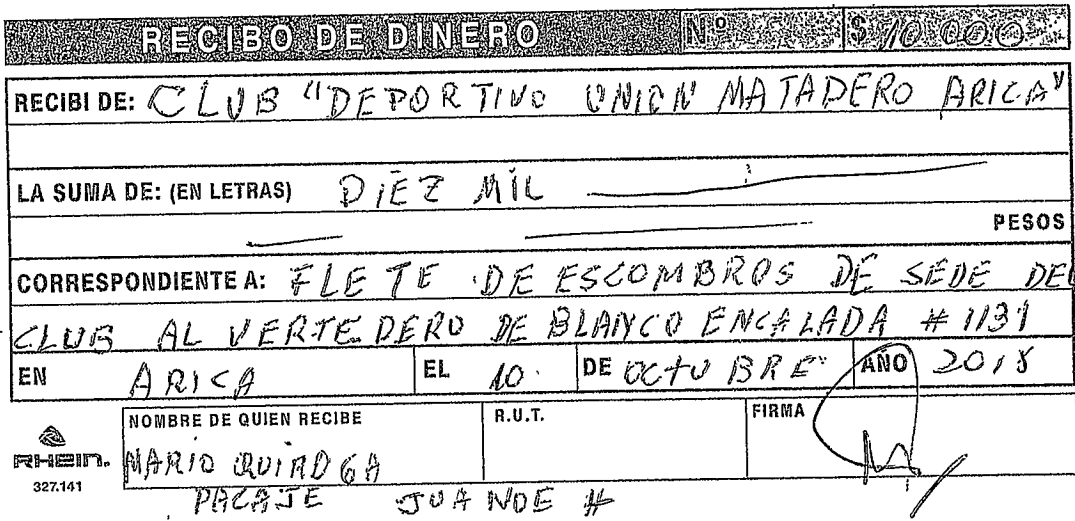 RECIBO DE DINERO Nº $ 10.000
RECIBI DE: CLUB "DEPORTIVO UNION MATADERO ARICA"
LA SUMA DE: (EN LETRAS) DIEZ MIL
PESOS
CORRESPONDIENTE A: FLETE DE ESCOMBROS DE SEDE DEL
CLUB AL VERTEDERO DE BLANCO ENCALADA # 1131
EN ARICA EL 10 DE OCTUBRE AÑO 2018
NOMBRE DE QUIEN RECIBE R.U.T. FIRMA
RHEIN. MARIO QUIROGA
327.141
PACAJE JUAN NOE #